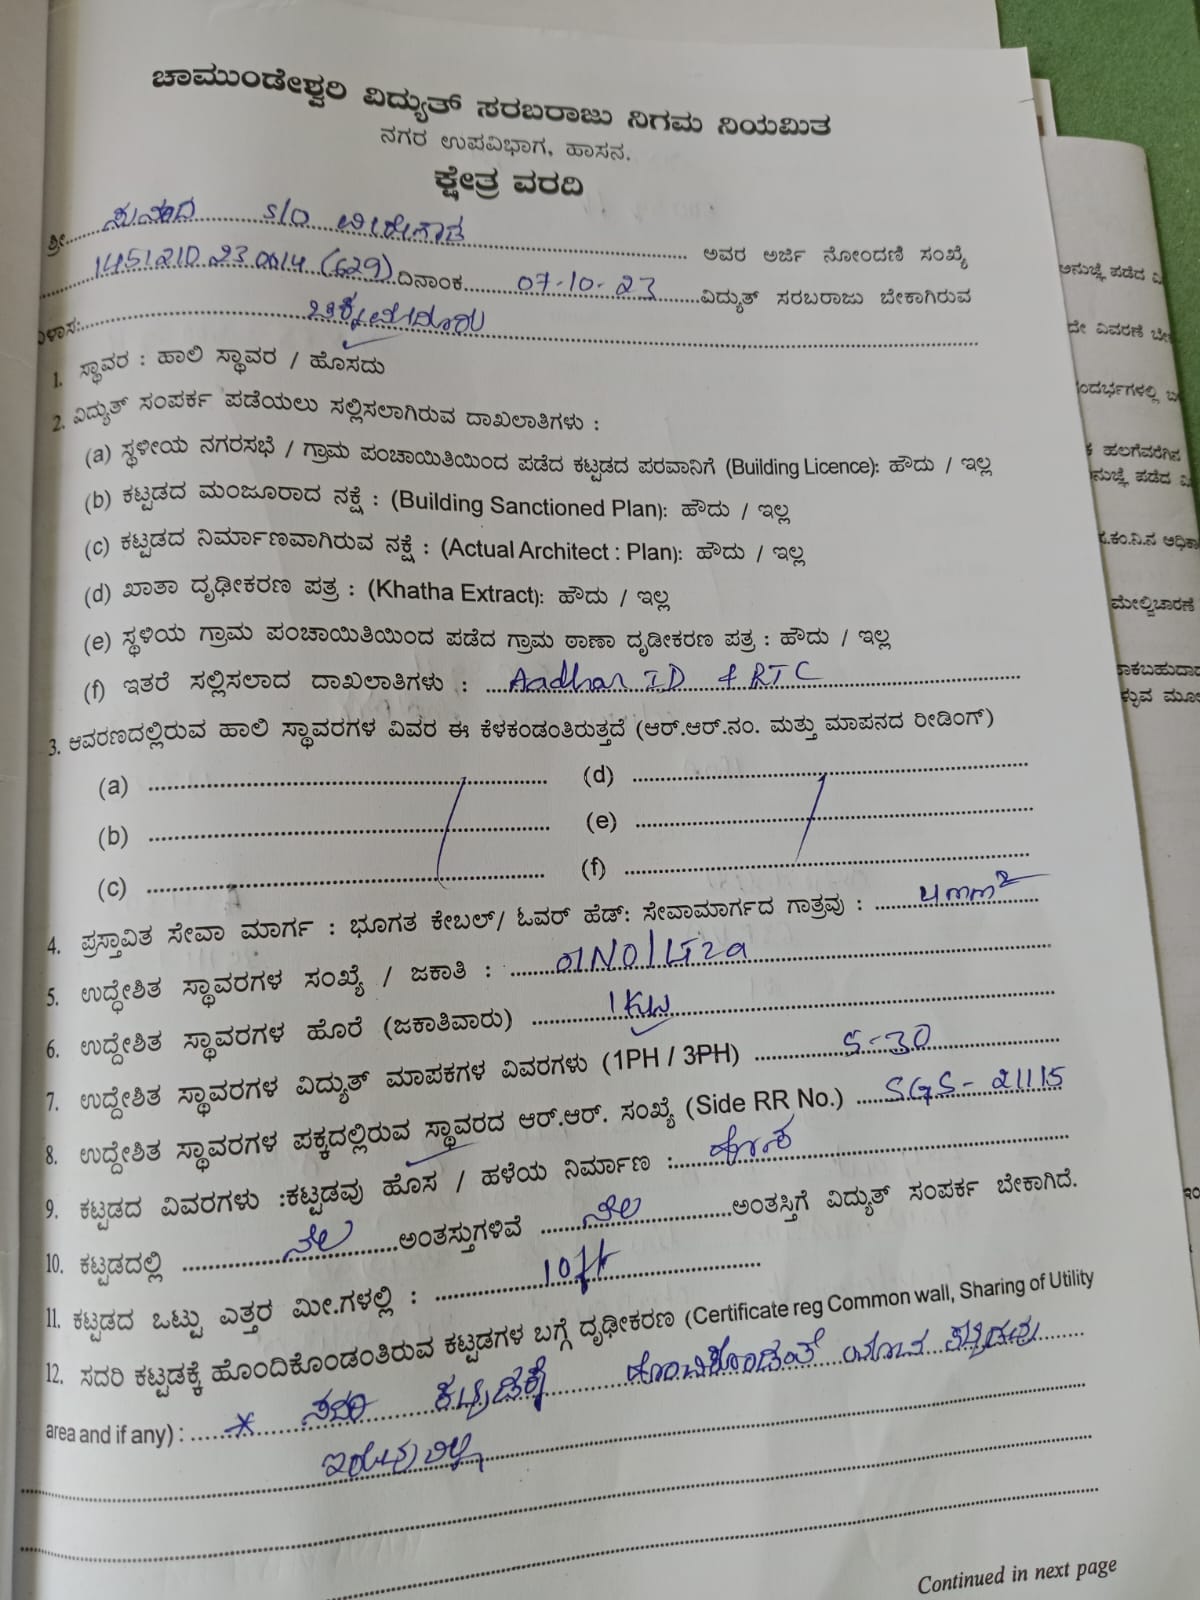 ಚಾಮುಂಡೇಶ್ವರಿ ವಿದ್ಯುತ್ ಸರಬರಾಜು ನಿಗಮ ನಿಯಮಿತ
ನಗರ ಉಪವಿಭಾಗ, ಹಾಸನ.
ಕ್ಷೇತ್ರ ವರದಿ
ಶ್ರೀ..... S/O
ಅವರ ಅರ್ಜಿ ನೋಂದಣಿ ಸಂಖ್ಯೆ
ದಿನಾಂಕ 07-10-23 ವಿದ್ಯುತ್ ಸರಬರಾಜು ಬೇಕಾಗಿರುವ
1. ಸ್ಥಾವರ : ಹಾಲಿ ಸ್ಥಾವರ / ಹೊಸದು
2. ವಿದ್ಯುತ್ ಸಂಪರ್ಕ ಪಡೆಯಲು ಸಲ್ಲಿಸಲಾಗಿರುವ ದಾಖಲಾತಿಗಳು :
(a) ಸ್ಥಳೀಯ ನಗರಸಭೆ / ಗ್ರಾಮ ಪಂಚಾಯಿತಿಯಿಂದ ಪಡೆದ ಕಟ್ಟಡದ ಪರವಾನಿಗೆ (Building Licence): ಹೌದು / ಇಲ್ಲ
(b) ಕಟ್ಟಡದ ಮಂಜೂರಾದ ನಕ್ಷೆ : (Building Sanctioned Plan): ಹೌದು / ಇಲ್ಲ
(c) ಕಟ್ಟಡದ ನಿರ್ಮಾಣವಾಗಿರುವ ನಕ್ಷೆ : (Actual Architect : Plan): ಹೌದು / ಇಲ್ಲ
(d) ಖಾತಾ ದೃಢೀಕರಣ ಪತ್ರ : (Khatha Extract): ಹೌದು / ಇಲ್ಲ
(e) ಸ್ಥಳಿಯ ಗ್ರಾಮ ಪಂಚಾಯಿತಿಯಿಂದ ಪಡೆದ ಗ್ರಾಮ ಠಾಣಾ ದೃಡೀಕರಣ ಪತ್ರ : ಹೌದು / ಇಲ್ಲ
(f) ಇತರೆ ಸಲ್ಲಿಸಲಾದ ದಾಖಲಾತಿಗಳು : Aadhar ID & RTC
3. ಆವರಣದಲ್ಲಿರುವ ಹಾಲಿ ಸ್ಥಾವರಗಳ ವಿವರ ಈ ಕೆಳಕಂಡಂತಿರುತ್ತದೆ (ಆರ್.ಆರ್.ನಂ. ಮತ್ತು ಮಾಪನದ ರೀಡಿಂಗ್)
(a) (d)
(b) (e)
(c) (f)
4. ಪ್ರಸ್ತಾವಿತ ಸೇವಾ ಮಾರ್ಗ : ಭೂಗತ ಕೇಬಲ್/ ಓವರ್ ಹೆಡ್: ಸೇವಾಮಾರ್ಗದ ಗಾತ್ರವು : 4mm²
5. ಉದ್ಧೇಶಿತ ಸ್ಥಾವರಗಳ ಸಂಖ್ಯೆ / ಜಕಾತಿ : 01NO/LT2a
6. ಉದ್ದೇಶಿತ ಸ್ಥಾವರಗಳ ಹೊರೆ (ಜಕಾತಿವಾರು) 1KW
7. ಉದ್ದೇಶಿತ ಸ್ಥಾವರಗಳ ವಿದ್ಯುತ್ ಮಾಪಕಗಳ ವಿವರಗಳು (1PH / 3PH) 5-30
8. ಉದ್ದೇಶಿತ ಸ್ಥಾವರಗಳ ಪಕ್ಕದಲ್ಲಿರುವ ಸ್ಥಾವರದ ಆರ್.ಆರ್. ಸಂಖ್ಯೆ (Side RR No.) SGS-21115
9. ಕಟ್ಟಡದ ವಿವರಗಳು :ಕಟ್ಟಡವು ಹೊಸ / ಹಳೆಯ ನಿರ್ಮಾಣ : ಹೊಸ
10. ಕಟ್ಟಡದಲ್ಲಿ ನೆಲ ಅಂತಸ್ತುಗಳಿವೆ ನೆಲ ಅಂತಸ್ತಿಗೆ ವಿದ್ಯುತ್ ಸಂಪರ್ಕ ಬೇಕಾಗಿದೆ.
11. ಕಟ್ಟಡದ ಒಟ್ಟು ಎತ್ತರ ಮೀ.ಗಳಲ್ಲಿ : 10ft
12. ಸದರಿ ಕಟ್ಟಡಕ್ಕೆ ಹೊಂದಿಕೊಂಡಂತಿರುವ ಕಟ್ಟಡಗಳ ಬಗ್ಗೆ ದೃಢೀಕರಣ (Certificate reg Common wall, Sharing of Utility
area and if any) : * ಸದರಿ ಕಟ್ಟಡಕ್ಕೆ ಹೊಂದಿಕೊಂಡಂತೆ ಯಾವ ಕಟ್ಟಡವು
ಇರುವುದಿಲ್ಲ
Continued in next page